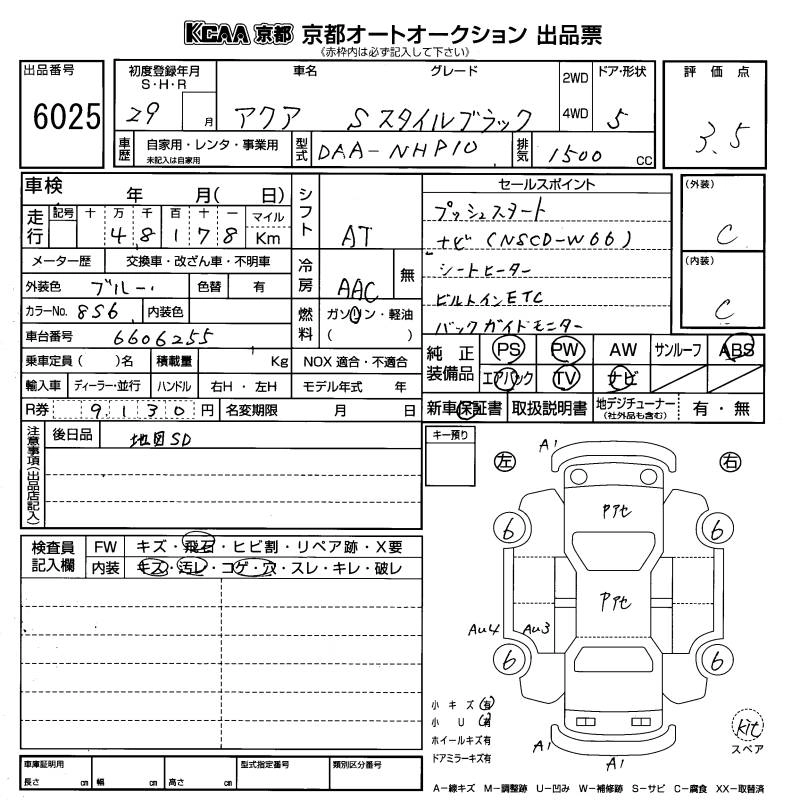 KCAA 京都 京都オートオークション 出品票
(赤枠内は必ず記入して下さい)
出品番号 6025
初度登録年月 S・H・R 29 月
車名 アクア
グレード Sスタイルブラック
2WD 4WD
ドア・形状 5
評価点 3.5
車歴 自家用・レンタ・事業用 未記入は自家用
型式 DAA-NHP10
排気 1500 CC
車検 年 月( 日)
走行 記号 十 万 千 百 十 一 マイル
4 8 1 7 8 Km
シフト AT
メーター歴 交換車・改ざん車・不明車
冷房 AAC 無
外装色 ブルー 色替 有
カラーNo. 8S6 内装色
燃料 ガソリン・軽油 ( )
車台番号 6606255
乗車定員( )名 積載量 Kg NOX 適合・不適合
輸入車 ディーラー・並行 ハンドル 右H・左H モデル年式 年
R券 9,130 円 名変期限 月 日
セールスポイント
プッシュスタート
ナビ (NSCD-W66)
シートヒーター
ビルトインETC
バックガイドモニター
(外装) C
(内装) C
純正装備品 PS PW AW サンルーフ ABS
エアバック TV ナビ
新車保証書 取扱説明書 地デジチューナー (社外品も含む) 有・無
注意事項(出品店記入) 後日品 地図SD
キー預り
左 右
A1
6 Pアセ 6
Pアセ
AU4 AU3
6 6
A1 A1
検査員記入欄 FW キズ・飛石・ヒビ割・リペア跡・X要
内装 キズ・汚レ・コゲ・穴・スレ・キレ・破レ
小キズ 有
小U 有
ホイールキズ有
ドアミラーキズ有
kit
スペア
車庫証明用 長さ cm 幅 cm 高さ cm 型式指定番号 類別区分番号
A-線キズ M-調整跡 U-凹み W-補修跡 S-サビ C-腐食 XX-取替済